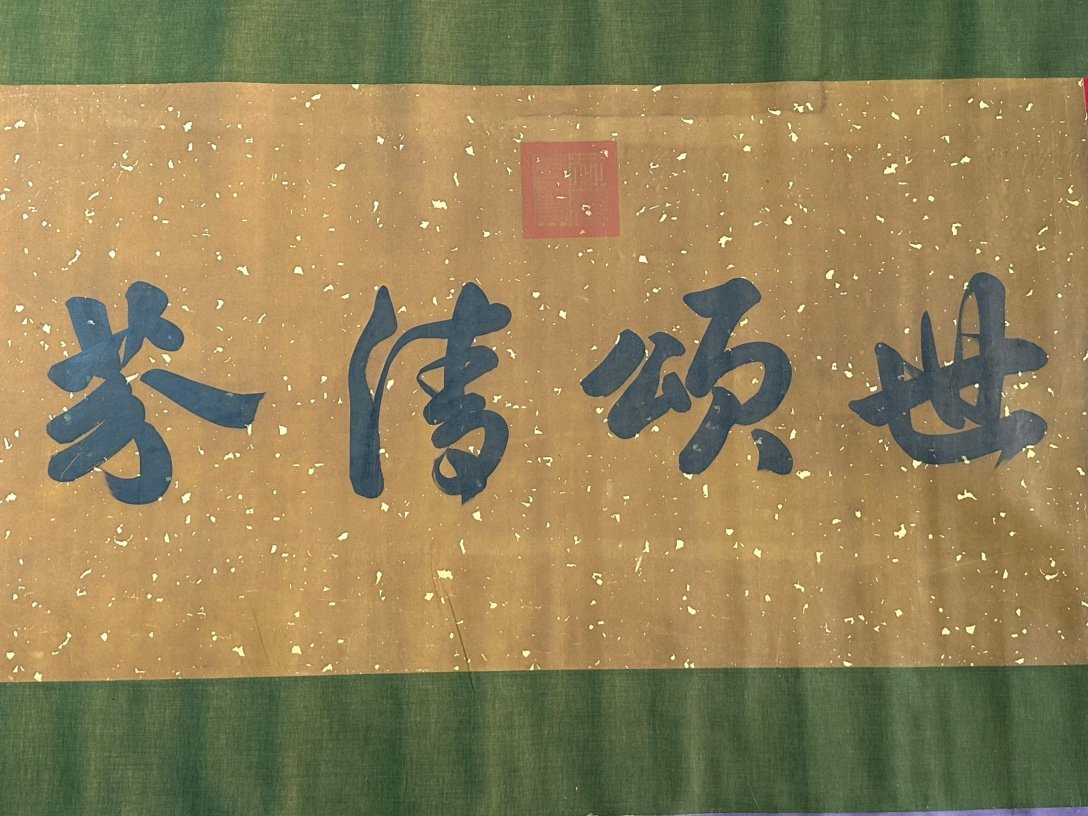 世頌清芬